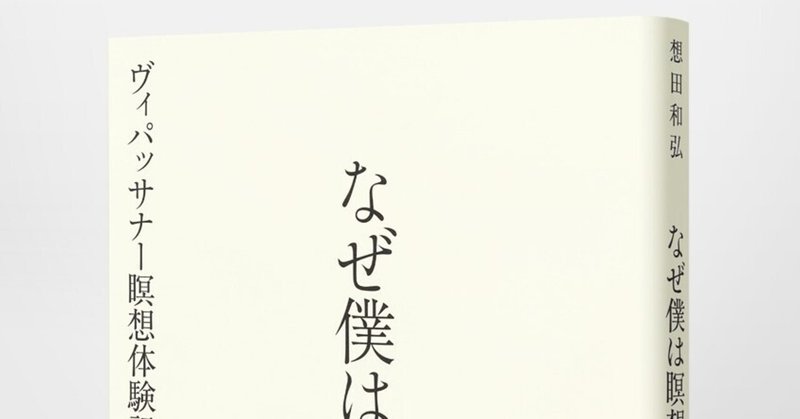 想田和弘
なぜ僕は瞑想
なぜ僕は
ヴィパッサナー瞑想体験